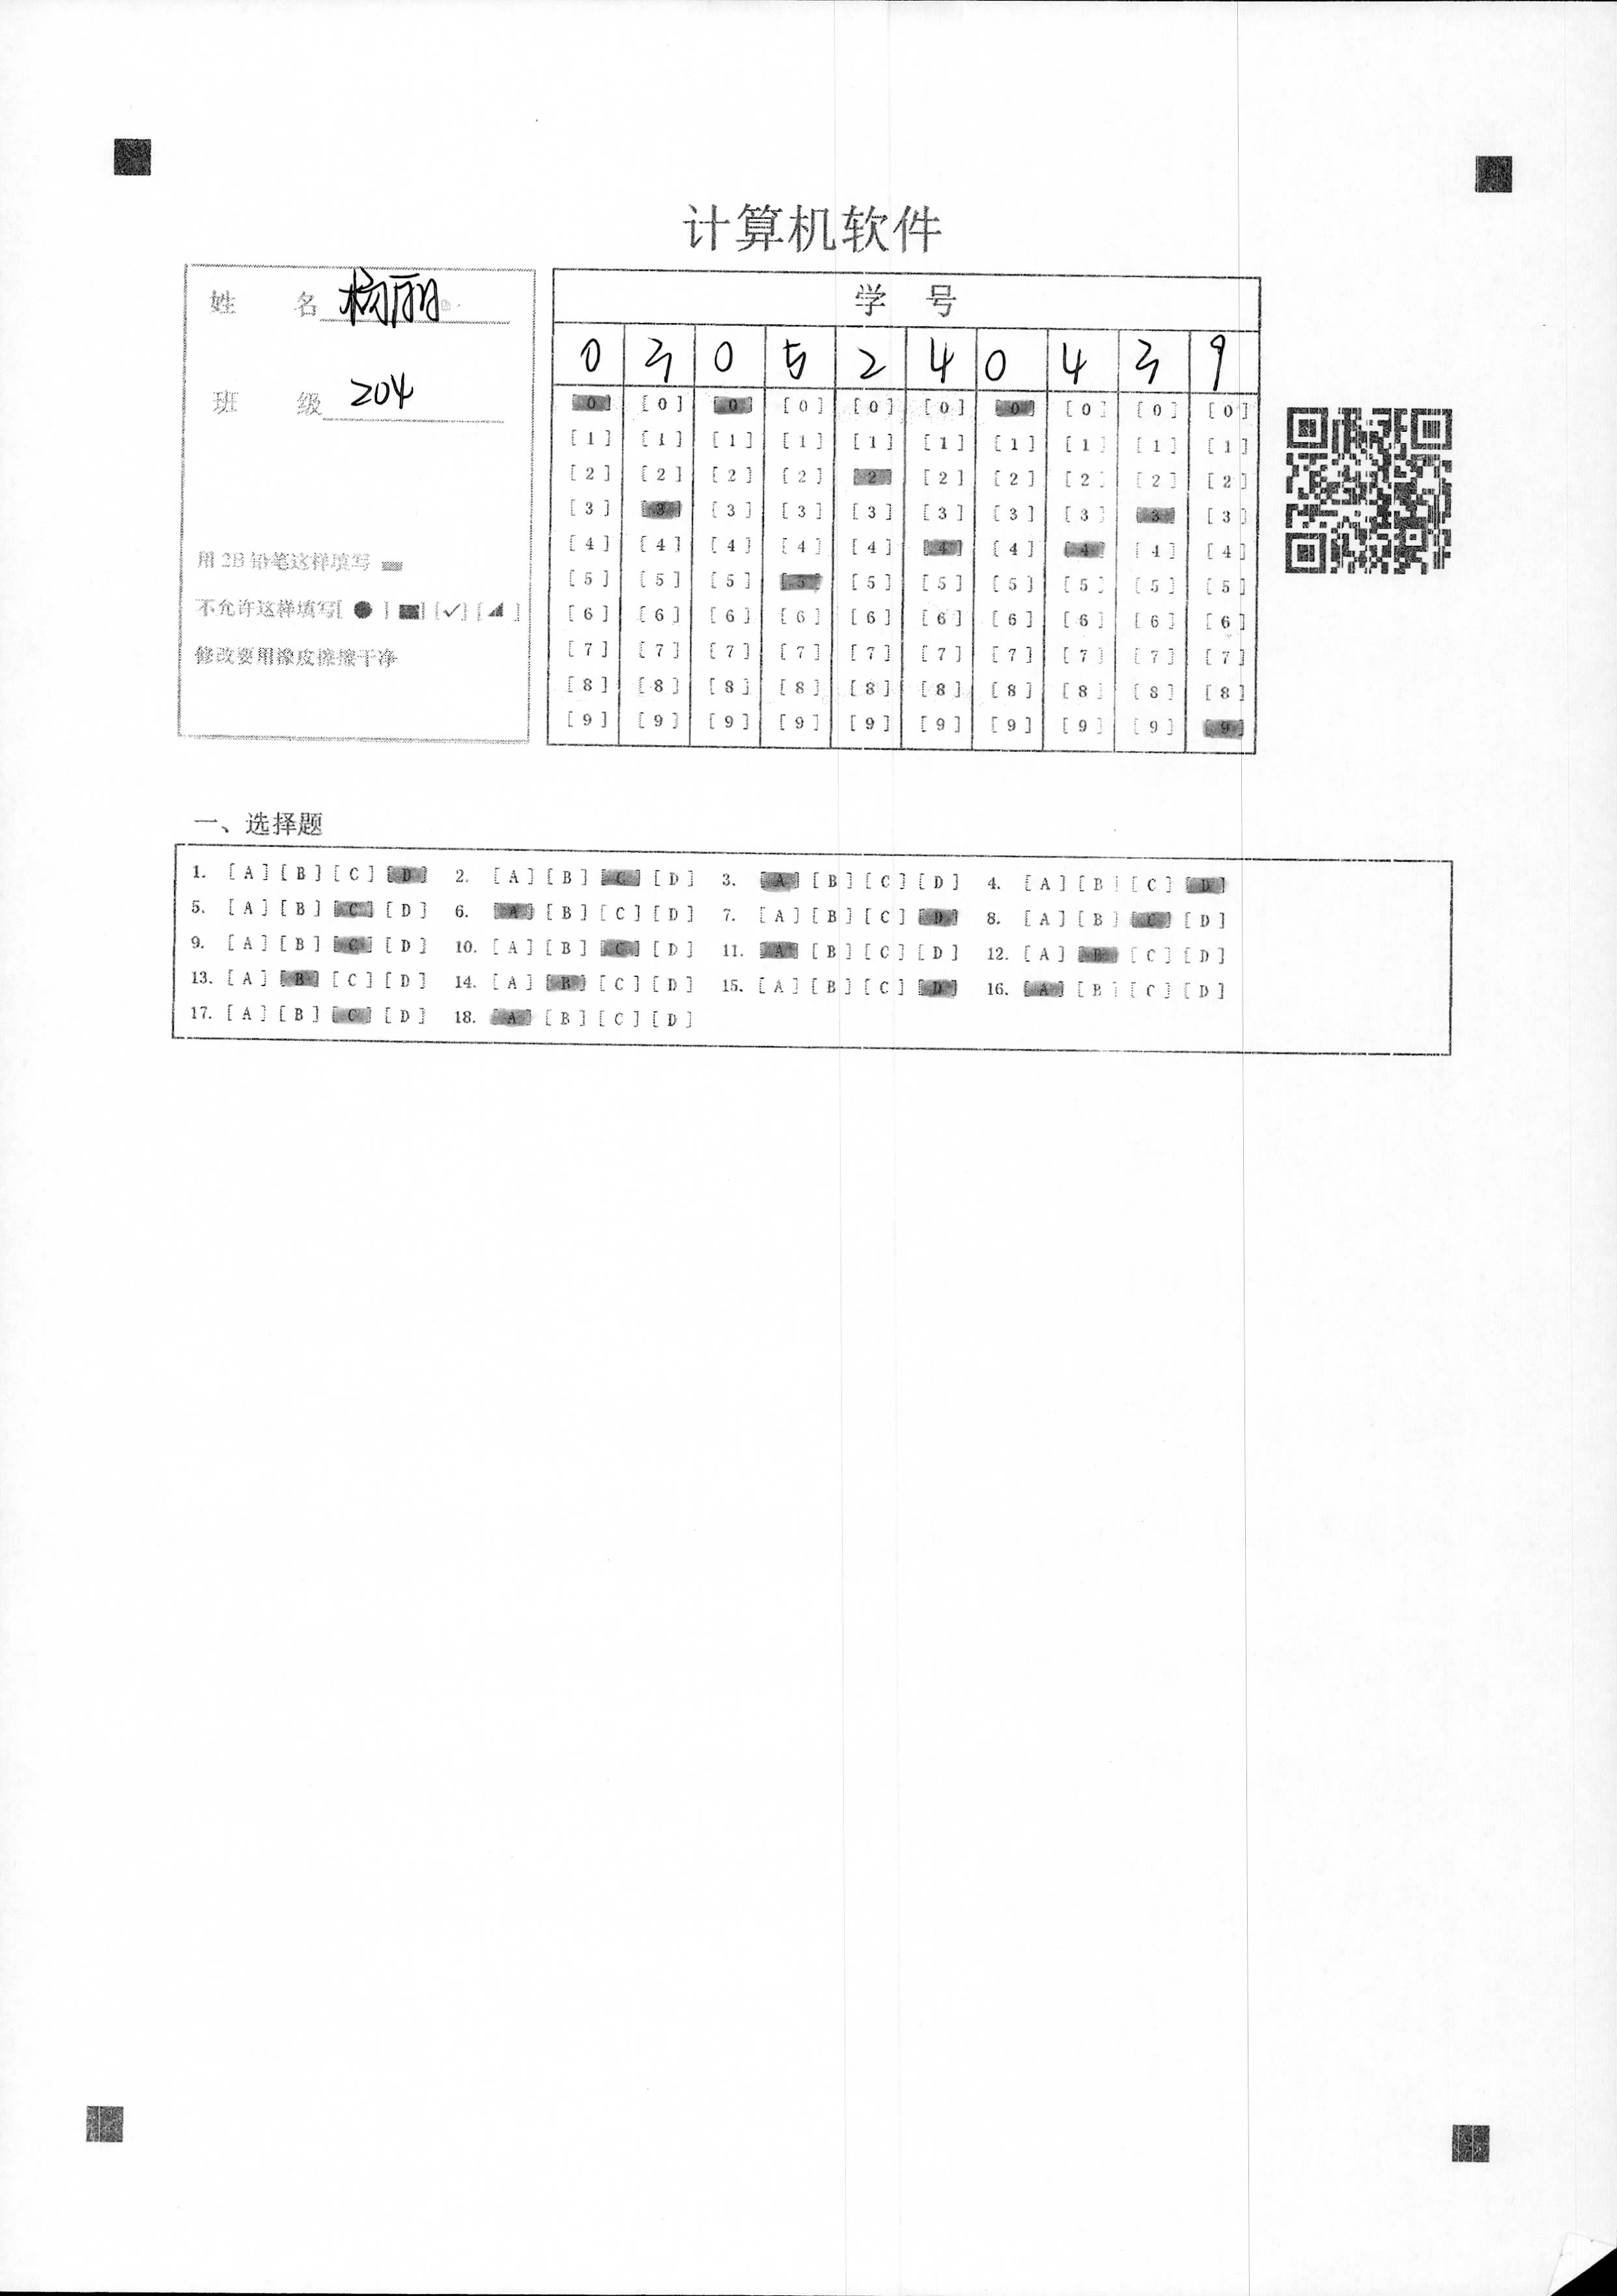 计算机软件
姓 名 杨丽
班 级 204
用 2B 铅笔这样填写
不允许这样填写[ ● ] [■] [✓] [ ]
修改要用橡皮擦擦干净
学 号
0 3 0 5 2 4 0 4 3 9
[0] [0] [0] [0] [0] [0] [0] [0] [0] [0]
[1] [1] [1] [1] [1] [1] [1] [1] [1] [1]
[2] [2] [2] [2] [2] [2] [2] [2] [2] [2]
[3] [3] [3] [3] [3] [3] [3] [3] [3] [3]
[4] [4] [4] [4] [4] [4] [4] [4] [4] [4]
[5] [5] [5] [5] [5] [5] [5] [5] [5] [5]
[6] [6] [6] [6] [6] [6] [6] [6] [6] [6]
[7] [7] [7] [7] [7] [7] [7] [7] [7] [7]
[8] [8] [8] [8] [8] [8] [8] [8] [8] [8]
[9] [9] [9] [9] [9] [9] [9] [9] [9] [9]
一、选择题
1. [A] [B] [C] [D] 2. [A] [B] [C] [D] 3. [A] [B] [C] [D] 4. [A] [B] [C] [D]
5. [A] [B] [C] [D] 6. [A] [B] [C] [D] 7. [A] [B] [C] [D] 8. [A] [B] [C] [D]
9. [A] [B] [C] [D] 10. [A] [B] [C] [D] 11. [A] [B] [C] [D] 12. [A] [B] [C] [D]
13. [A] [B] [C] [D] 14. [A] [B] [C] [D] 15. [A] [B] [C] [D] 16. [A] [B] [C] [D]
17. [A] [B] [C] [D] 18. [A] [B] [C] [D]